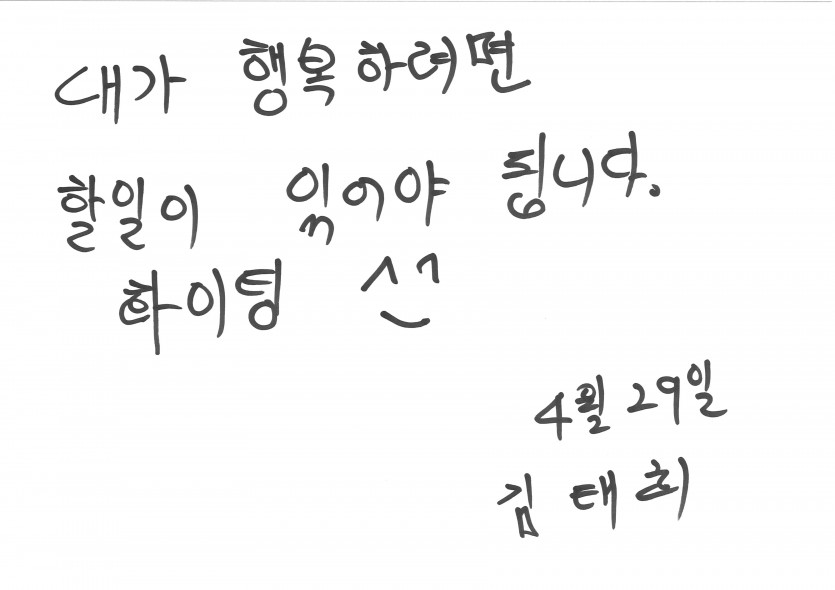 내가 행복하려면
할일이 있어야 됩니다.
하이팅 ^^
4월 29일
김태희